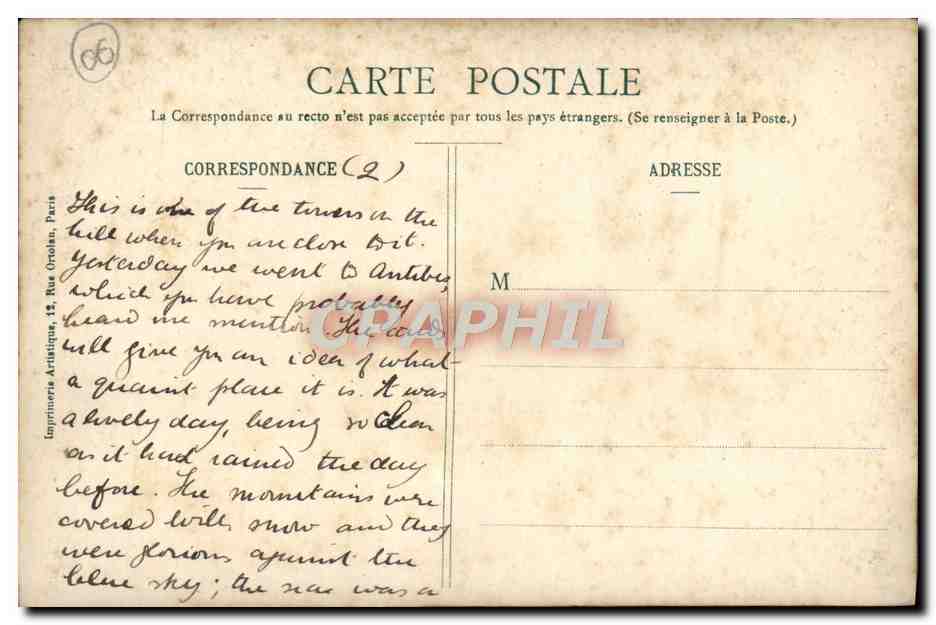 06
CARTE POSTALE
La Correspondance au recto n'est pas acceptée par tous les pays étrangers. (Se renseigner à la Poste.)
CORRESPONDANCE (2)
This is one of the towers on the
hill when you are close to it.
Yesterday we went to Antibes,
which you have probably
heard me mention. The cards
will give you an idea of what
a quaint place it is. It was
a lovely day, being so clear
as it had rained the day
before. The mountains were
covered with snow and they
were glorious against the
blue sky; the sea was a
ADRESSE
M
Imprimerie Artistique, 12, Rue Ortolan, Paris
CRAPHIL